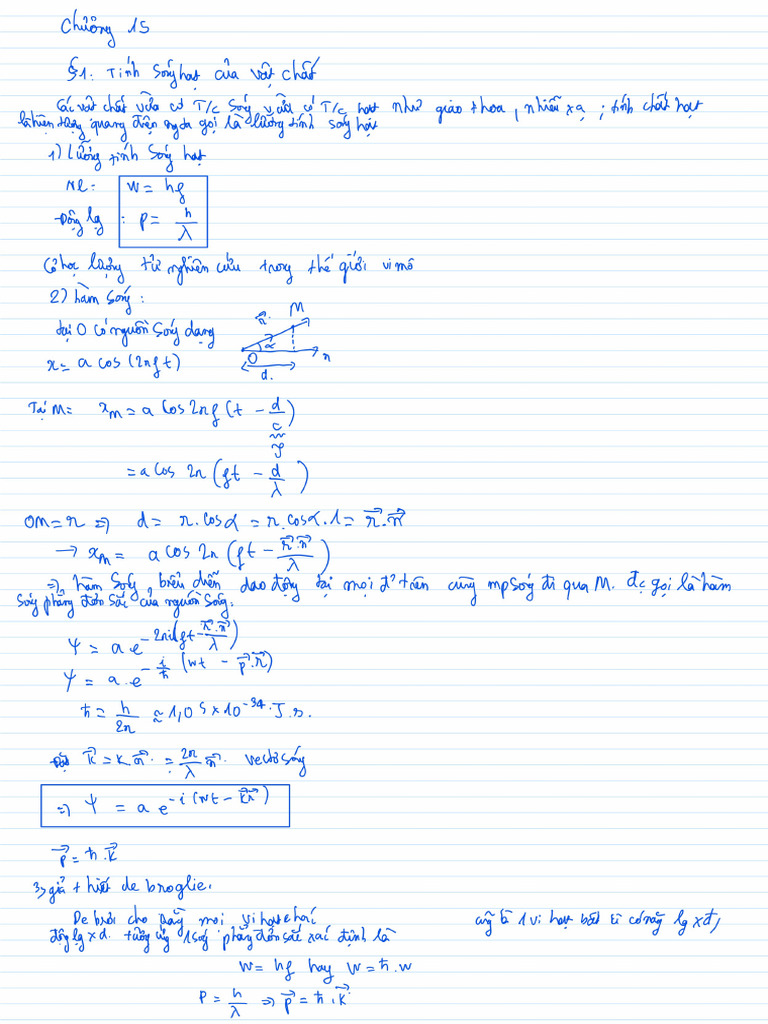 Chương 15
§1: Tính sóng hạt của vật chất
Các vật chất vừa có T/c sóng vừa có T/c hạt như giao thoa, nhiễu xạ; tính chất hạt
là hiện tượng quang điện ngta gọi là lưỡng tính sóng hạt
1) Lưỡng tính sóng hạt
NL: W = hf
Động lg: p = h/λ
Cơ học lượng tử nghiên cứu trong thế giới vi mô
2) hàm sóng:
tại O có nguồn sóng dạng
x = a cos(2πft)
M
n⃗
α
O
n
d.
Tại M: x_M = a cos 2πf (t - d/c)
= a cos 2π (ft - d/λ)
OM = r ⇒ d = r.cosα = r.cosα.1 = r⃗.n⃗
→ x_M = a cos 2π (ft - r⃗.n⃗/λ)
⇒ hàm sóng biểu diễn dao động tại mọi đ' trên cùng mp sóng đi qua M. đc gọi là hàm
sóng phẳng đơn sắc của nguồn sóng.
Ψ = a e^{-2πi(ft - r⃗.n⃗/λ)}
Ψ = a.e^{-i/ħ (wt - p⃗.r⃗)}
ħ = h/2π ≈ 1,05 × 10^{-34} J.s.
Đặt k⃗ = k n⃗ = 2π/λ n⃗ vectơ sóng
⇒ Ψ = a e^{-i(wt - k⃗r⃗)}
p⃗ = ħ.k⃗
3, giả thiết de broglie.
De brơi cho rằng mọi vi hạt cũng là 1 vi hạt bất kì có năng lg xđ,
động lg xđ. tương ứng 1 sóng phẳng đơn sắc xác định là
W = hf hay W = ħ.w
P = h/λ ⇒ p⃗ = ħ.k⃗